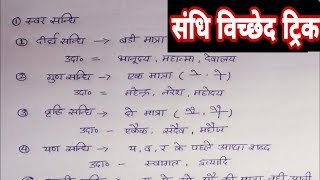 संधि विच्छेद ट्रिक
① स्वर सन्धि
① दीर्घ सन्धि → बडी मात्रा
उदा० = भानूदय, महात्मा, देवालय
② गुण सन्धि → एक मात्रा ( े, ो )
उदा० - महेन्द्र, नरेश, महोदय
③ वृद्धि सन्धि → दो मात्रा ( ै, ौ )
उदा० - एकैक, सदैव, महौज
④ यण सन्धि → य, व, र के पहले आधा शब्द
उदा० - स्वागत, इत्यादि